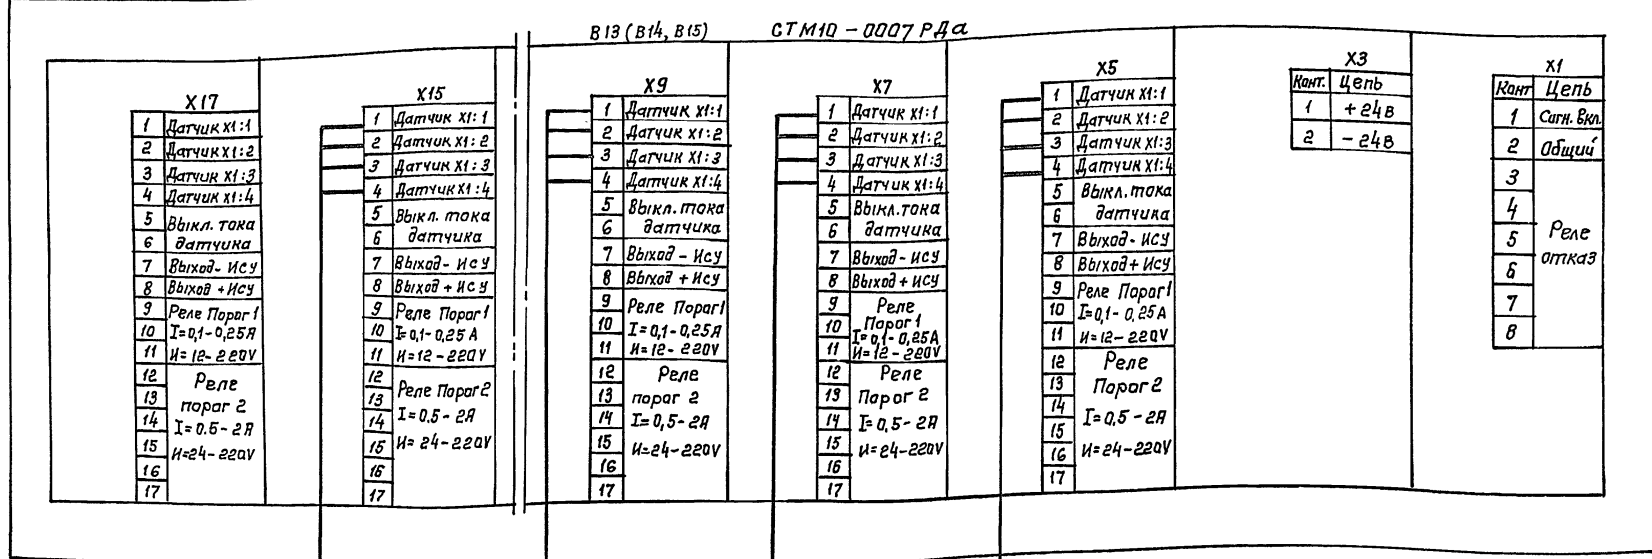 В13 (В14, В15) СТМ10-0007 РДа
Х17
1 Датчик Х1:1
2 Датчик Х1:2
3 Датчик Х1:3
4 Датчик Х1:4
5 Выкл. тока
6 датчика
7 Выход - Ису
8 Выход + Ису
9 Реле Порог 1
10 I=0,1-0,25А
11 И=12-220V
12 Реле
13 порог 2
14 I=0.5-2А
15 И=24-220V
16
17
Х15
1 Датчик Х1:1
2 Датчик Х1:2
3 Датчик Х1:3
4 Датчик Х1:4
5 Выкл. тока
6 датчика
7 Выход - Ису
8 Выход + Ису
9 Реле Порог 1
10 I=0,1-0,25А
11 И=12-220V
12
13 Реле Порог 2
14 I=0.5-2А
15 И=24-220V
16
17
Х9
1 Датчик Х1:1
2 Датчик Х1:2
3 Датчик Х1:3
4 Датчик Х1:4
5 Выкл. тока
6 датчика
7 Выход - Ису
8 Выход + Ису
9 Реле Порог 1
10 I=0,1-0,25А
11 И=12-220V
12 Реле
13 порог 2
14 I=0,5-2А
15 И=24-220V
16
17
Х7
1 Датчик Х1:1
2 Датчик Х1:2
3 Датчик Х1:3
4 Датчик Х1:4
5 Выкл. тока
6 датчика
7 Выход - Ису
8 Выход + Ису
9 Реле
10 Порог 1
I=0,1-0,25А
11 И=12-220V
12 Реле
13 Порог 2
14 I=0,5-2А
15 И=24-220V
16
17
Х5
1 Датчик Х1:1
2 Датчик Х1:2
3 Датчик Х1:3
4 Датчик Х1:4
5 Выкл. тока
6 датчика
7 Выход - Ису
8 Выход + Ису
9 Реле Порог 1
10 I=0,1-0,25А
11 И=12-220V
12 Реле
13 Порог 2
14 I=0,5-2А
15
16 И=24-220V
17
Х3
Конт. Цепь
1 +24В
2 -24В
Х1
Конт Цепь
1 Сигн. Вкл.
2 Общий
3
4
5 Реле
6 отказ
7
8